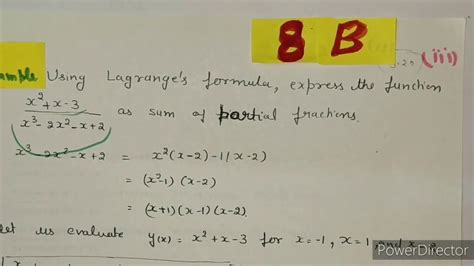 8 B
(iii)
ample Using Lagrange's formula, express the function
x² + x - 3 / x³ - 2x² - x + 2 as sum of partial fractions.
x³ - 2x² - x + 2 = x²(x-2) - 1(x-2)
= (x²-1) (x-2)
= (x+1) (x-1) (x-2).
let us evaluate y(x) = x² + x - 3 for x = -1, x = 1 and x
PowerDirector